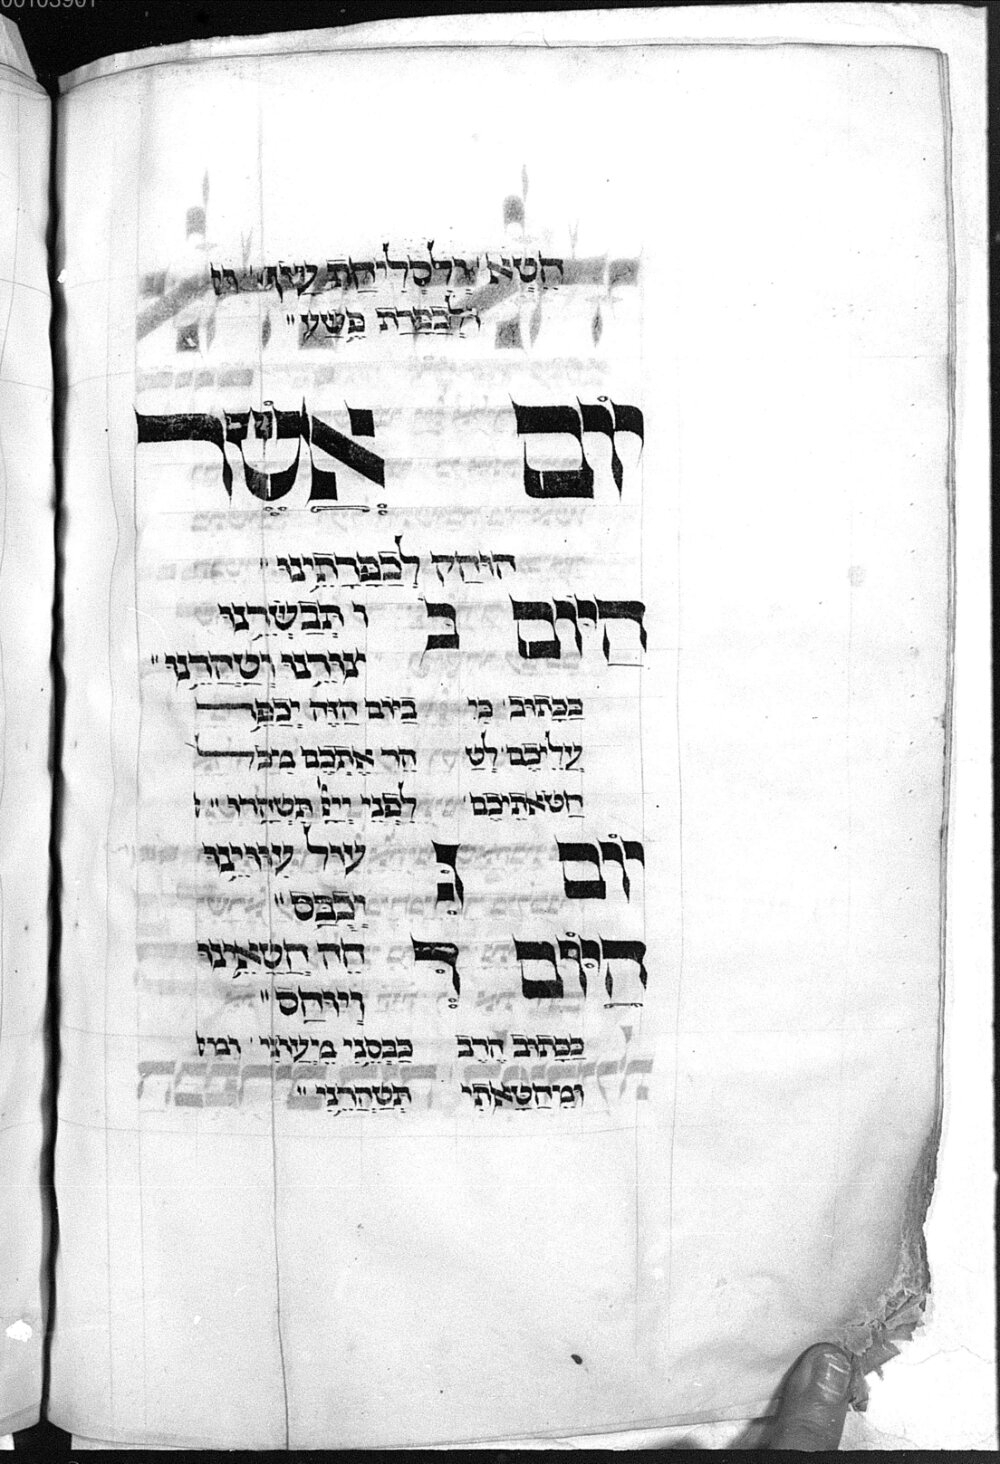 00103901
חֵטְא וְלִסְלִיחַת עָוֹן
וּלְכַפָּרַת פֶּשַׁע׃
יוֹם אֲשֶׁר
הוּחַק לְכַפָּרָתֵינוּ׃
הַיּוֹם בּ וֹ תְּבַשְּׂרֵנוּ
צוּרֵנוּ וְטַהֲרֵנוּ׃
כַּכָּתוּב כִּי בַיּוֹם הַזֶּה יְכַפֵּר
עֲלֵיכֶם לְטַ הֵר אֶתְכֶם מִכֹּל
חַטֹּאתֵיכֶם לִפְנֵי יְיָ תִּטְהָרוּ׃
יוֹם נְ עוֹל עֲוֹוֹנֵינוּ
יְכַבֵּס׃
הַיּוֹם דְּ חֵה חֲטָאֵינוּ
וְיוּחַס׃
כַּכָּתוּב הֶרֶב כַּבְּסֵנִי מֵעֲוֹנִי
וּמֵחַטָּאתִי תְּטַהֲרֵנִי׃